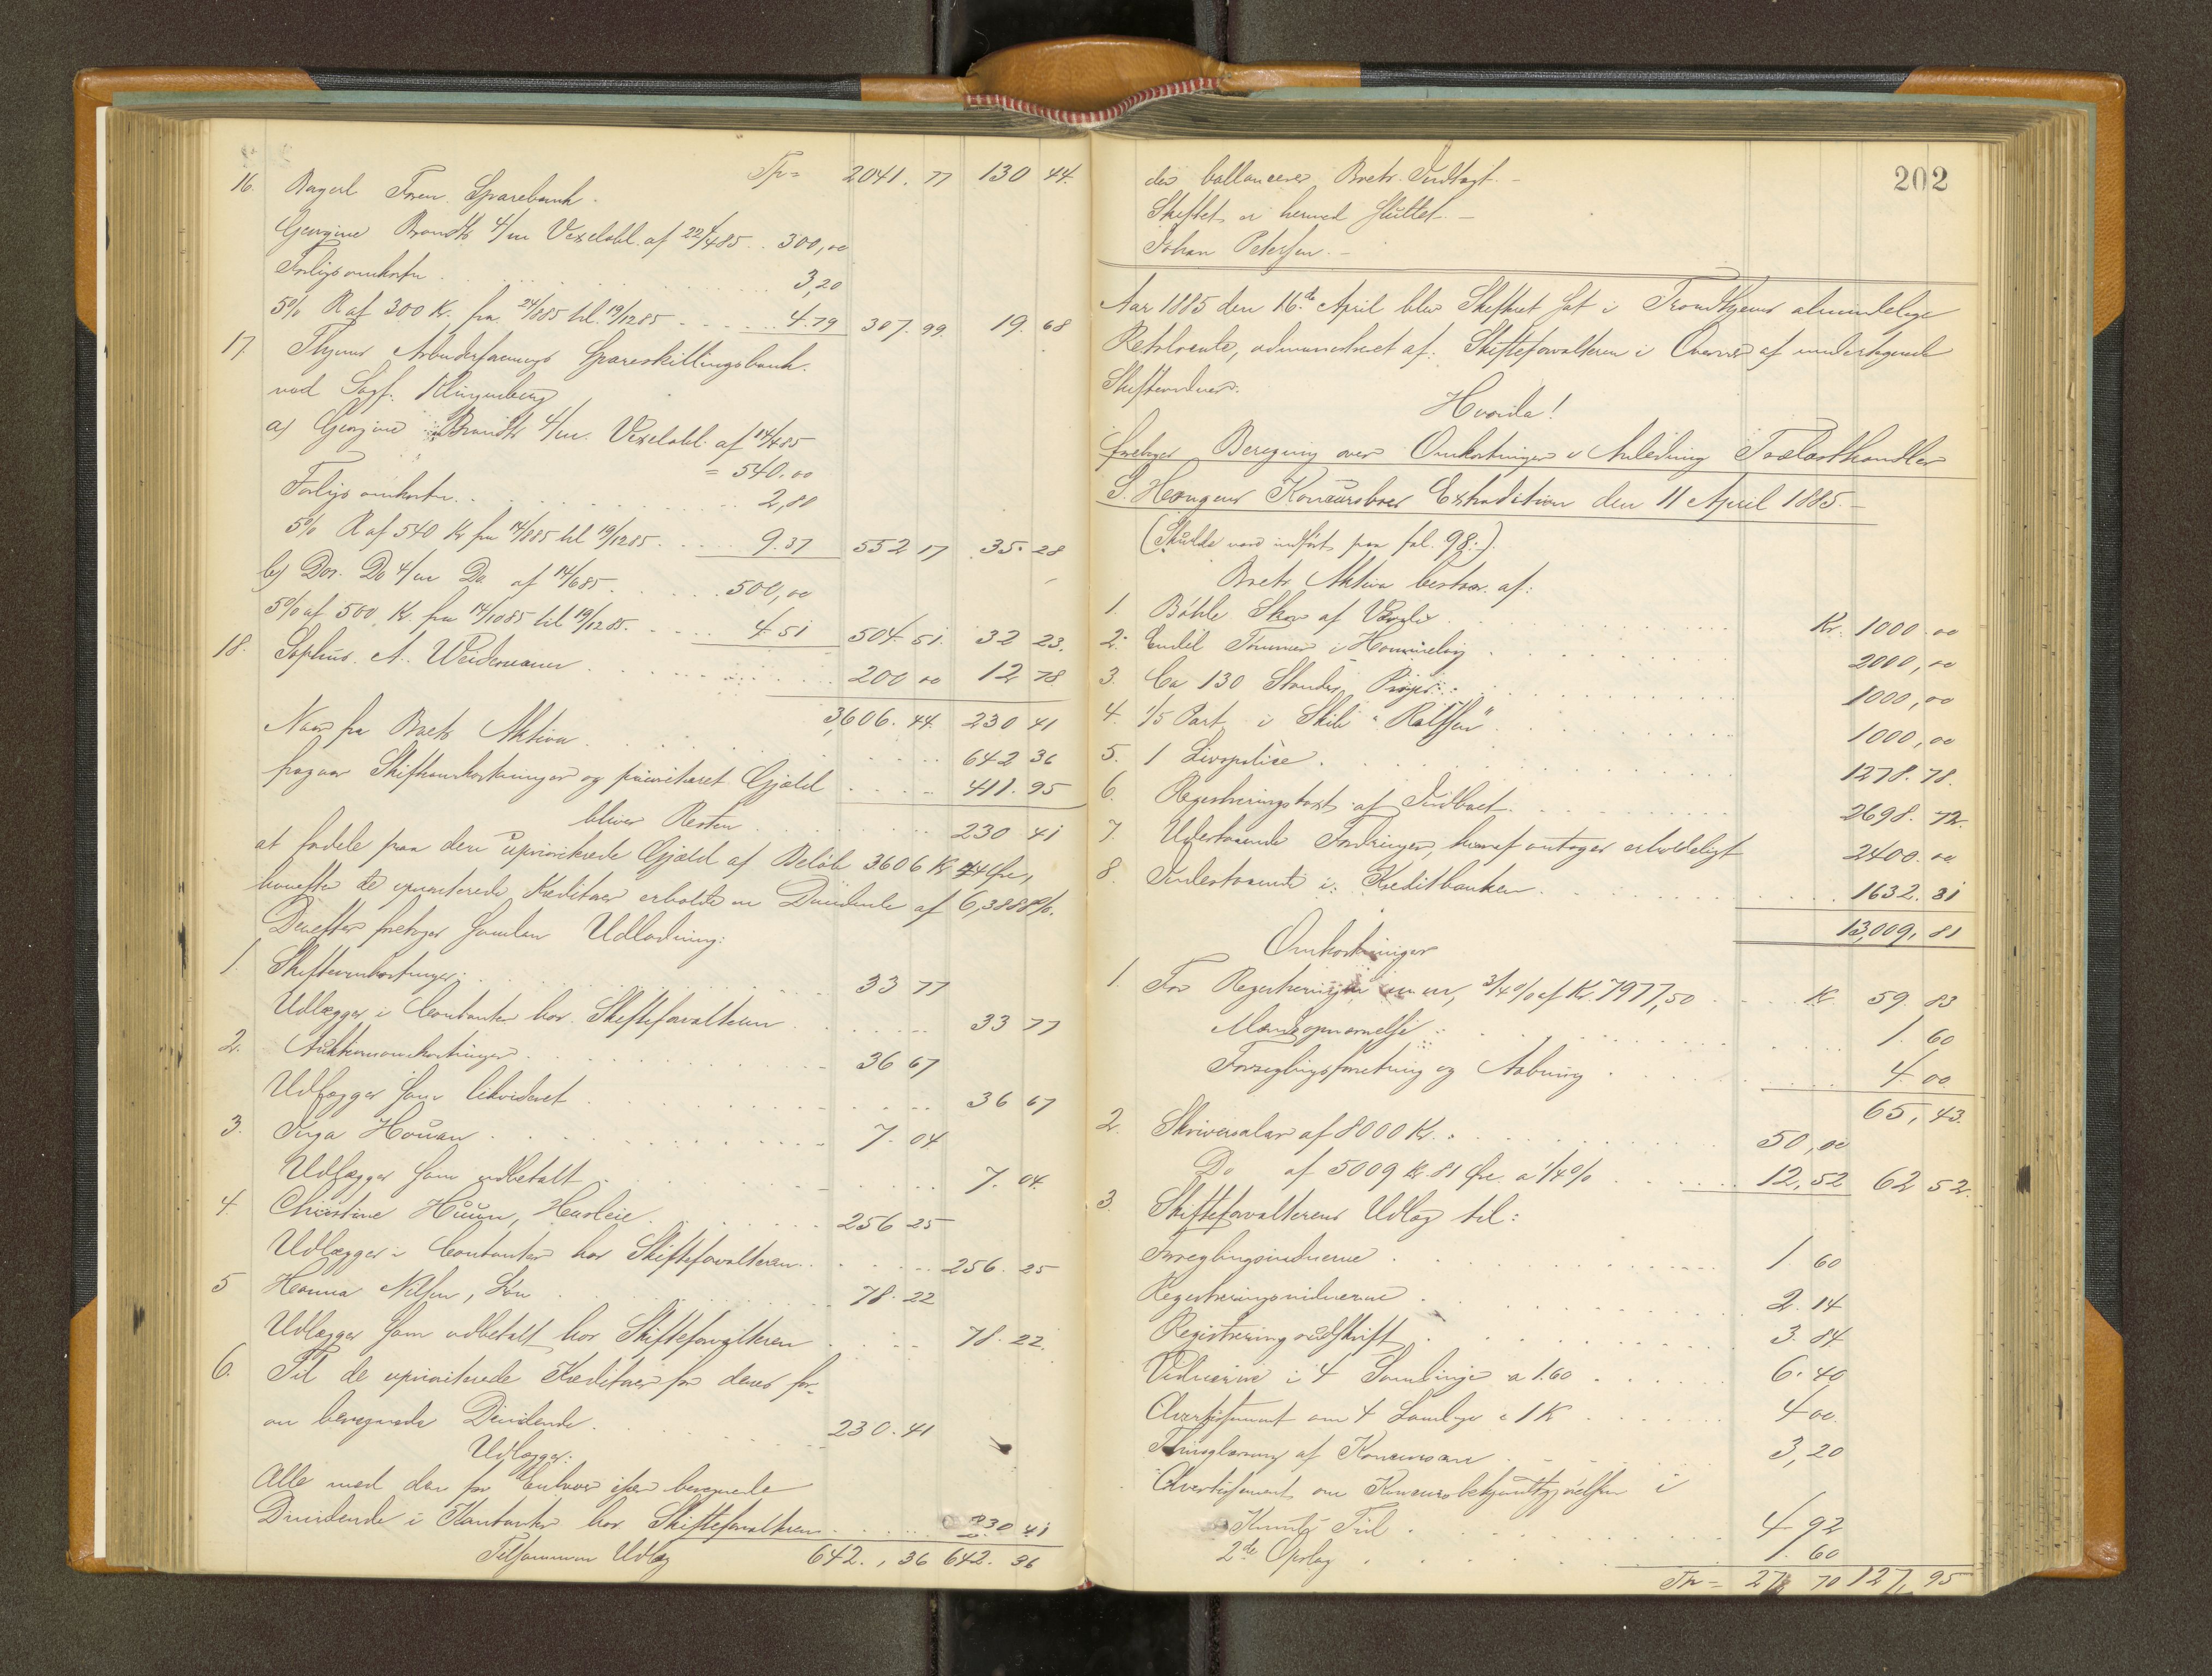 Tr= 2041. 77 130 44.
16. Bagerl Foren. Sparebank.
Georgine Brandts 4/m Vexelobl. af 22/4 85 .. 300,00
Forligsomkostn . . . 3,20
5% R af 300 Kr. fra 24/8 85 til 19/12 85 - . . . 4.79 307.99. 19.68
17. Thjems Arbeiderforenings Spareskillingsbank.
ved Sagf. Klingenberg
a) Georgine Brandts 4/m. Vexelobl. af 14/4 85
= 540.00
Forligsomkostn. . . . 2,80
5% R af 540 Kr fra 14/8 85 til 19/12 85 . . . 9.37 552 17 35.28
b) Dos. Do 4/m Do af 14/6 85 . . . 500,00
5% af 500 Kr. fra 14/10 85 til 19/12 85. . . . 4.51 504.51. 32 23.
18. Sophus A. Weidemann . . . 200 00 12 78
3,606.44. 230 41
Naar fra Boets Aktiva . . . 642 36
fragaar Skifteomkostninger og prioriteret Gjæld . . . 411.95
bliver Resten . . . 230 41
at fordele paa den uprioriterede Gjæld af Beløb 3606 Kr 44 Øre,
hvorefter de uprioriterede Kreditorer erholde en Dividende af 6,3888%.
Derefter foretoges saadan Udlodning:
1. Skifteomkostninger: . . . 33 77
Udlægges i Contanter hos Skifteforvalteren . . . 33 77
2. Auktionsomkostninger . . . 36 67
Udlægges som likvideret . . . 36 67
3. Inga Houan . . . 7.04
Udlægges som udbetalt . . . 7.04
4. Christine Huun, Husleie . . . 256 25
Udlægges i Contanter hos Skifteforvalteren . . . 256.25
5 Hanna Nilsen, Løn . . . 78.22
Udlægges som udbetalt hos Skifteforvalteren . . . 78.22.
6. Til de uprioriterede Kreditorer for deres for-
an beregnede Dividende . . . 230.41
Udlægges:
Alle med den for Enhver især beregnede
Dividende i Kontanter hos Skifteforvalteren . . . 230 41
Tilsammen Udlæg 642., 36 642. 36
202
der ballancerer Boets Indtægt. -
Skiftet er hermed sluttet. -
Johan Petersen. -
Aar 1885 den 16de April blev Skifteret sat i Trondhjems almindelige
Retslocale, administreret af: Skifteforvalteren i Overvær af undertegnede
Skiftevidner.
Hvorda!
foretoges Beregning over Omkostninger i Anledning Trælasthandler
S. Haugens Konkursboes Extradition den 11 April 1885. -
(Skulde være indført paa fol. 98.)
Boets Aktiva bestaar af:
1. Bøhle Skov af Værdi . . . Kr. 1000.00
2. Endel Tømmer i Hommelvig . . . 2000,00
3. Ca 130 Stander Props . . . 1000,00
4. 1/5 Part i Skib "Rolfsøn" . . . 1000,00
5. 1 Livspolise . . . 1278.78.
6. Registreringstaxt af Indboet . . . 2698.72.
7. Udestaaende Fordringer, hvoraf antages erholdeligt 2400.00
8. Indestaaende i Kreditbanken . . . 1632.31
13,009,81
Omkostninger
1. For Registreringen m m, 3/4% af Kr. 7977,50 . . . Kr. 59.83
Mændsopnævnelse . . . 1.60
Forseglingsforretning og Aabning . . . 4.00
65,43.
2. Skriversalær af 8000 Kr. . . . 50,00
Do af 5009 Kr 81 Øre a 1/4% . . . 12,52 62 52.
3. Skifteforvalterens Udlæg til:
Forseglingsvidnerne . . . 1.60
Registreringsvidnerne . . . 2.14
Registreringsudskrift . . . 3.84
Vidnerne i 4 Samlinger a 1.60 . . . 6.40
Avertissement om 4 Samlinger a 1 Kr . . . 4 00.
Thinglæsning af Konkursen . . . 3,20
Avertissement om Konkursbekjendtgjørelsen i
Kunds Tid . . . 4 92
2de Opslag . . . 1.60
Tr= 27, 70 127, 95